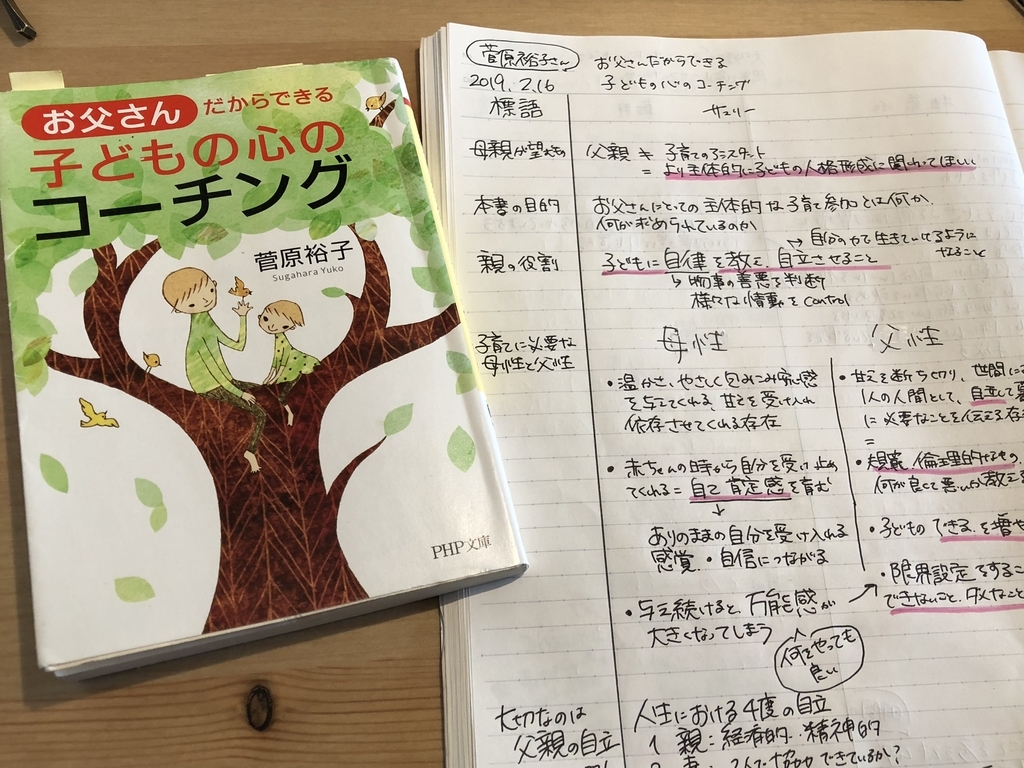 お父さん だからできる
子どもの心の
コーチング
菅原裕子
Sugahara Yuko
PHP文庫
菅原裕子さん お父さんだからできる
2019.2.16 子どもの心のコーチング
標語 サマリー
母親が望むもの 父親 ≠ 子育てのアシスタント
= より主体的に子どもの人格形成に関わってほしい
本書の目的 お父さんにとっての主体的な子育て参加とは何か、
何が求められているのか
→自分の力で生きていけるように
させること
親の役割 子どもに自律を教え、自立させること
↳物事の善悪を判断
様々な情動をcontrol
子育てに必要な
母性と父性
母性
・温かさ、やさしく包みこみ安心感
を与えてくれる、甘えを受け入れ
依存させてくれる存在
・赤ちゃんの時から自分を受け止め
てくれる=自己肯定感を育む
↓
ありのままの自分を受け入れる
感覚・自信につながる
・与え続けると、万能感が
大きくなってしまう
何をやっても
良い
父性
・甘えを断ち切り、世間に
1人の人間として、自立して
に必要なことを伝える存
=
・規範、倫理的なもの、
何が良くて悪いか教え
・子どものできるを増や
→・限界設定をするこ
できないこと、ダメなこと
大切なのは
父親の自立
人生における4度の自立
1 親:経済的・精神的